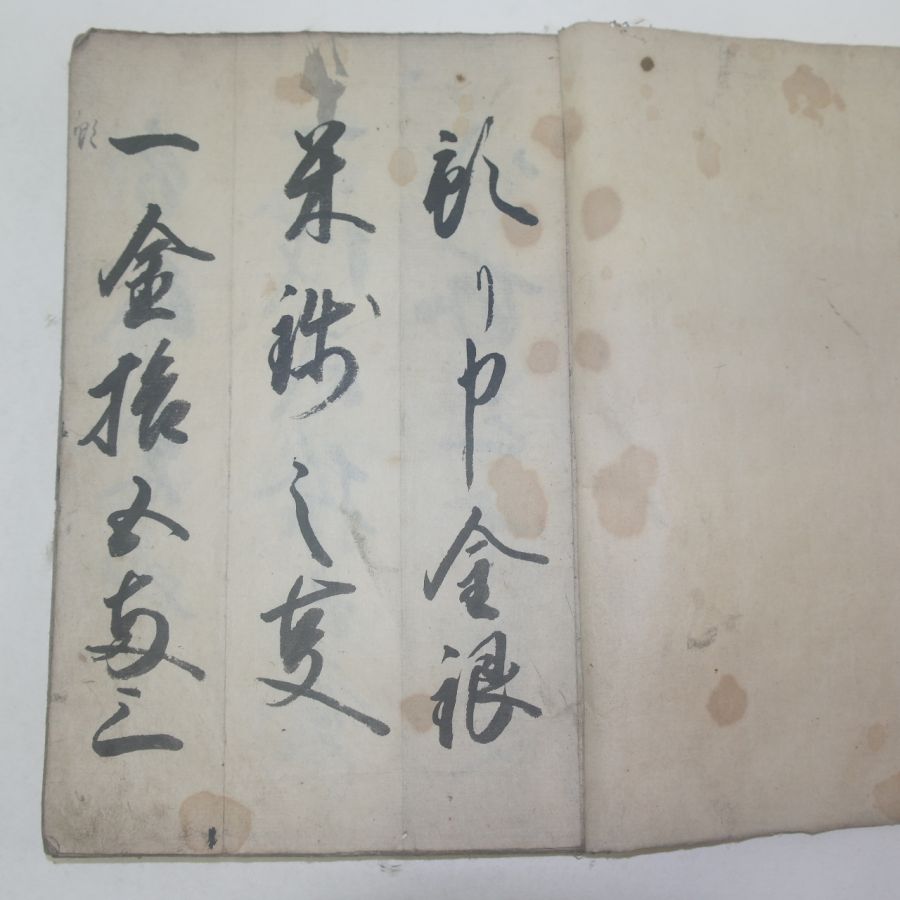 預り申金銀
米銭之叓
一金拾五両三